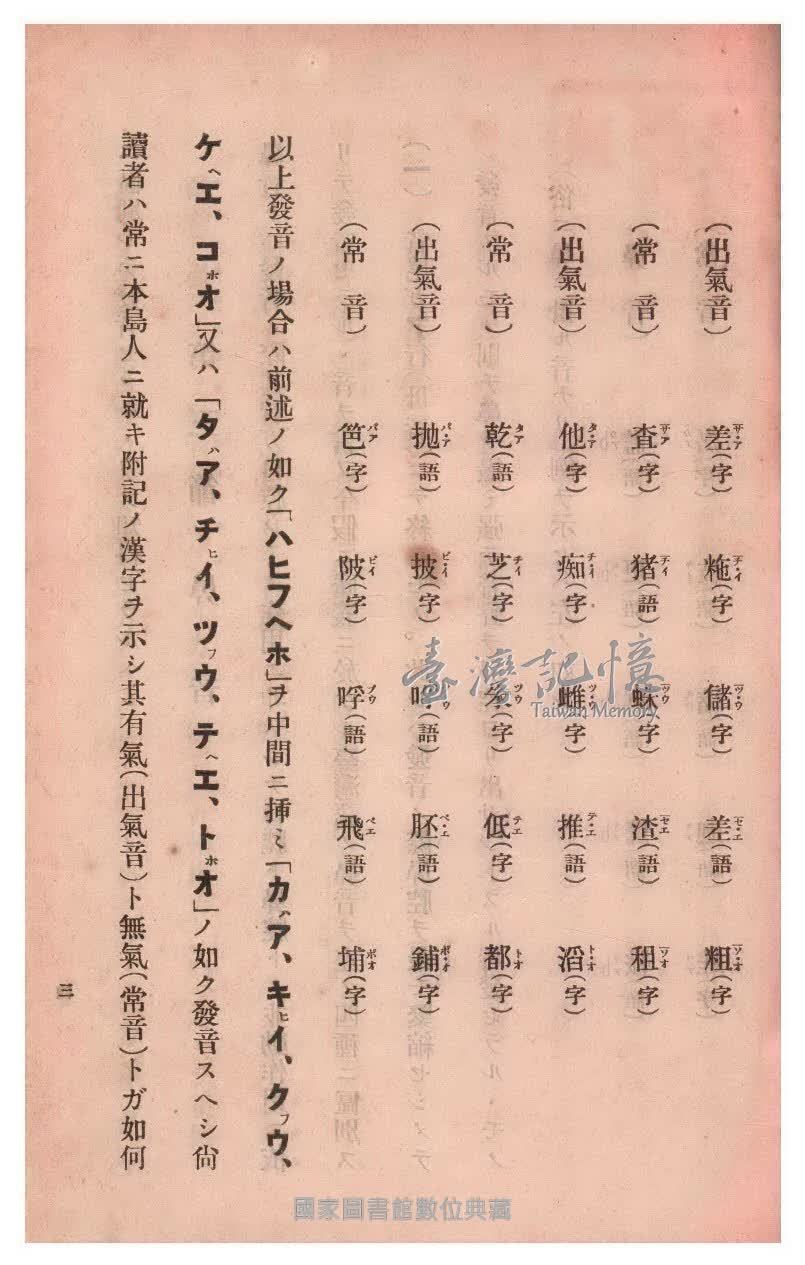 （出氣音） 差（字） 粚（字） 儲（字） 差（語） 粗（字）
（常　音） 査（字） 猪（語） 蛛（字） 渣（語） 租（字）
（出氣音） 他（字） 痴（字） 雎（字） 推（語） 滔（字）
（常　音） 乾（語） 芝（字） （字） 低（字） 都（字）
（出氣音） 抛（語） 披（字） （語） 胚（語） 鋪（字）
（常　音） 笆（字） 陂（字） 哹（語） 飛（語） 埔（字）
以上發音ノ場合ハ前述ノ如ク「ハヒフヘホ」ヲ中間ニ揷ミ「カハア、キヒイ、クフウ、
ケヘエ、コホオ」又ハ「タハア、チヒイ、ツフウ、テヘエ、トホオ」ノ如ク發音スヘシ尙
讀者ハ常ニ本島人ニ就キ附記ノ漢字ヲ示シ其有氣（出氣音）ト無氣（常音）トガ如何
三
臺灣記憶
Taiwan Memory
國家圖書館數位典藏